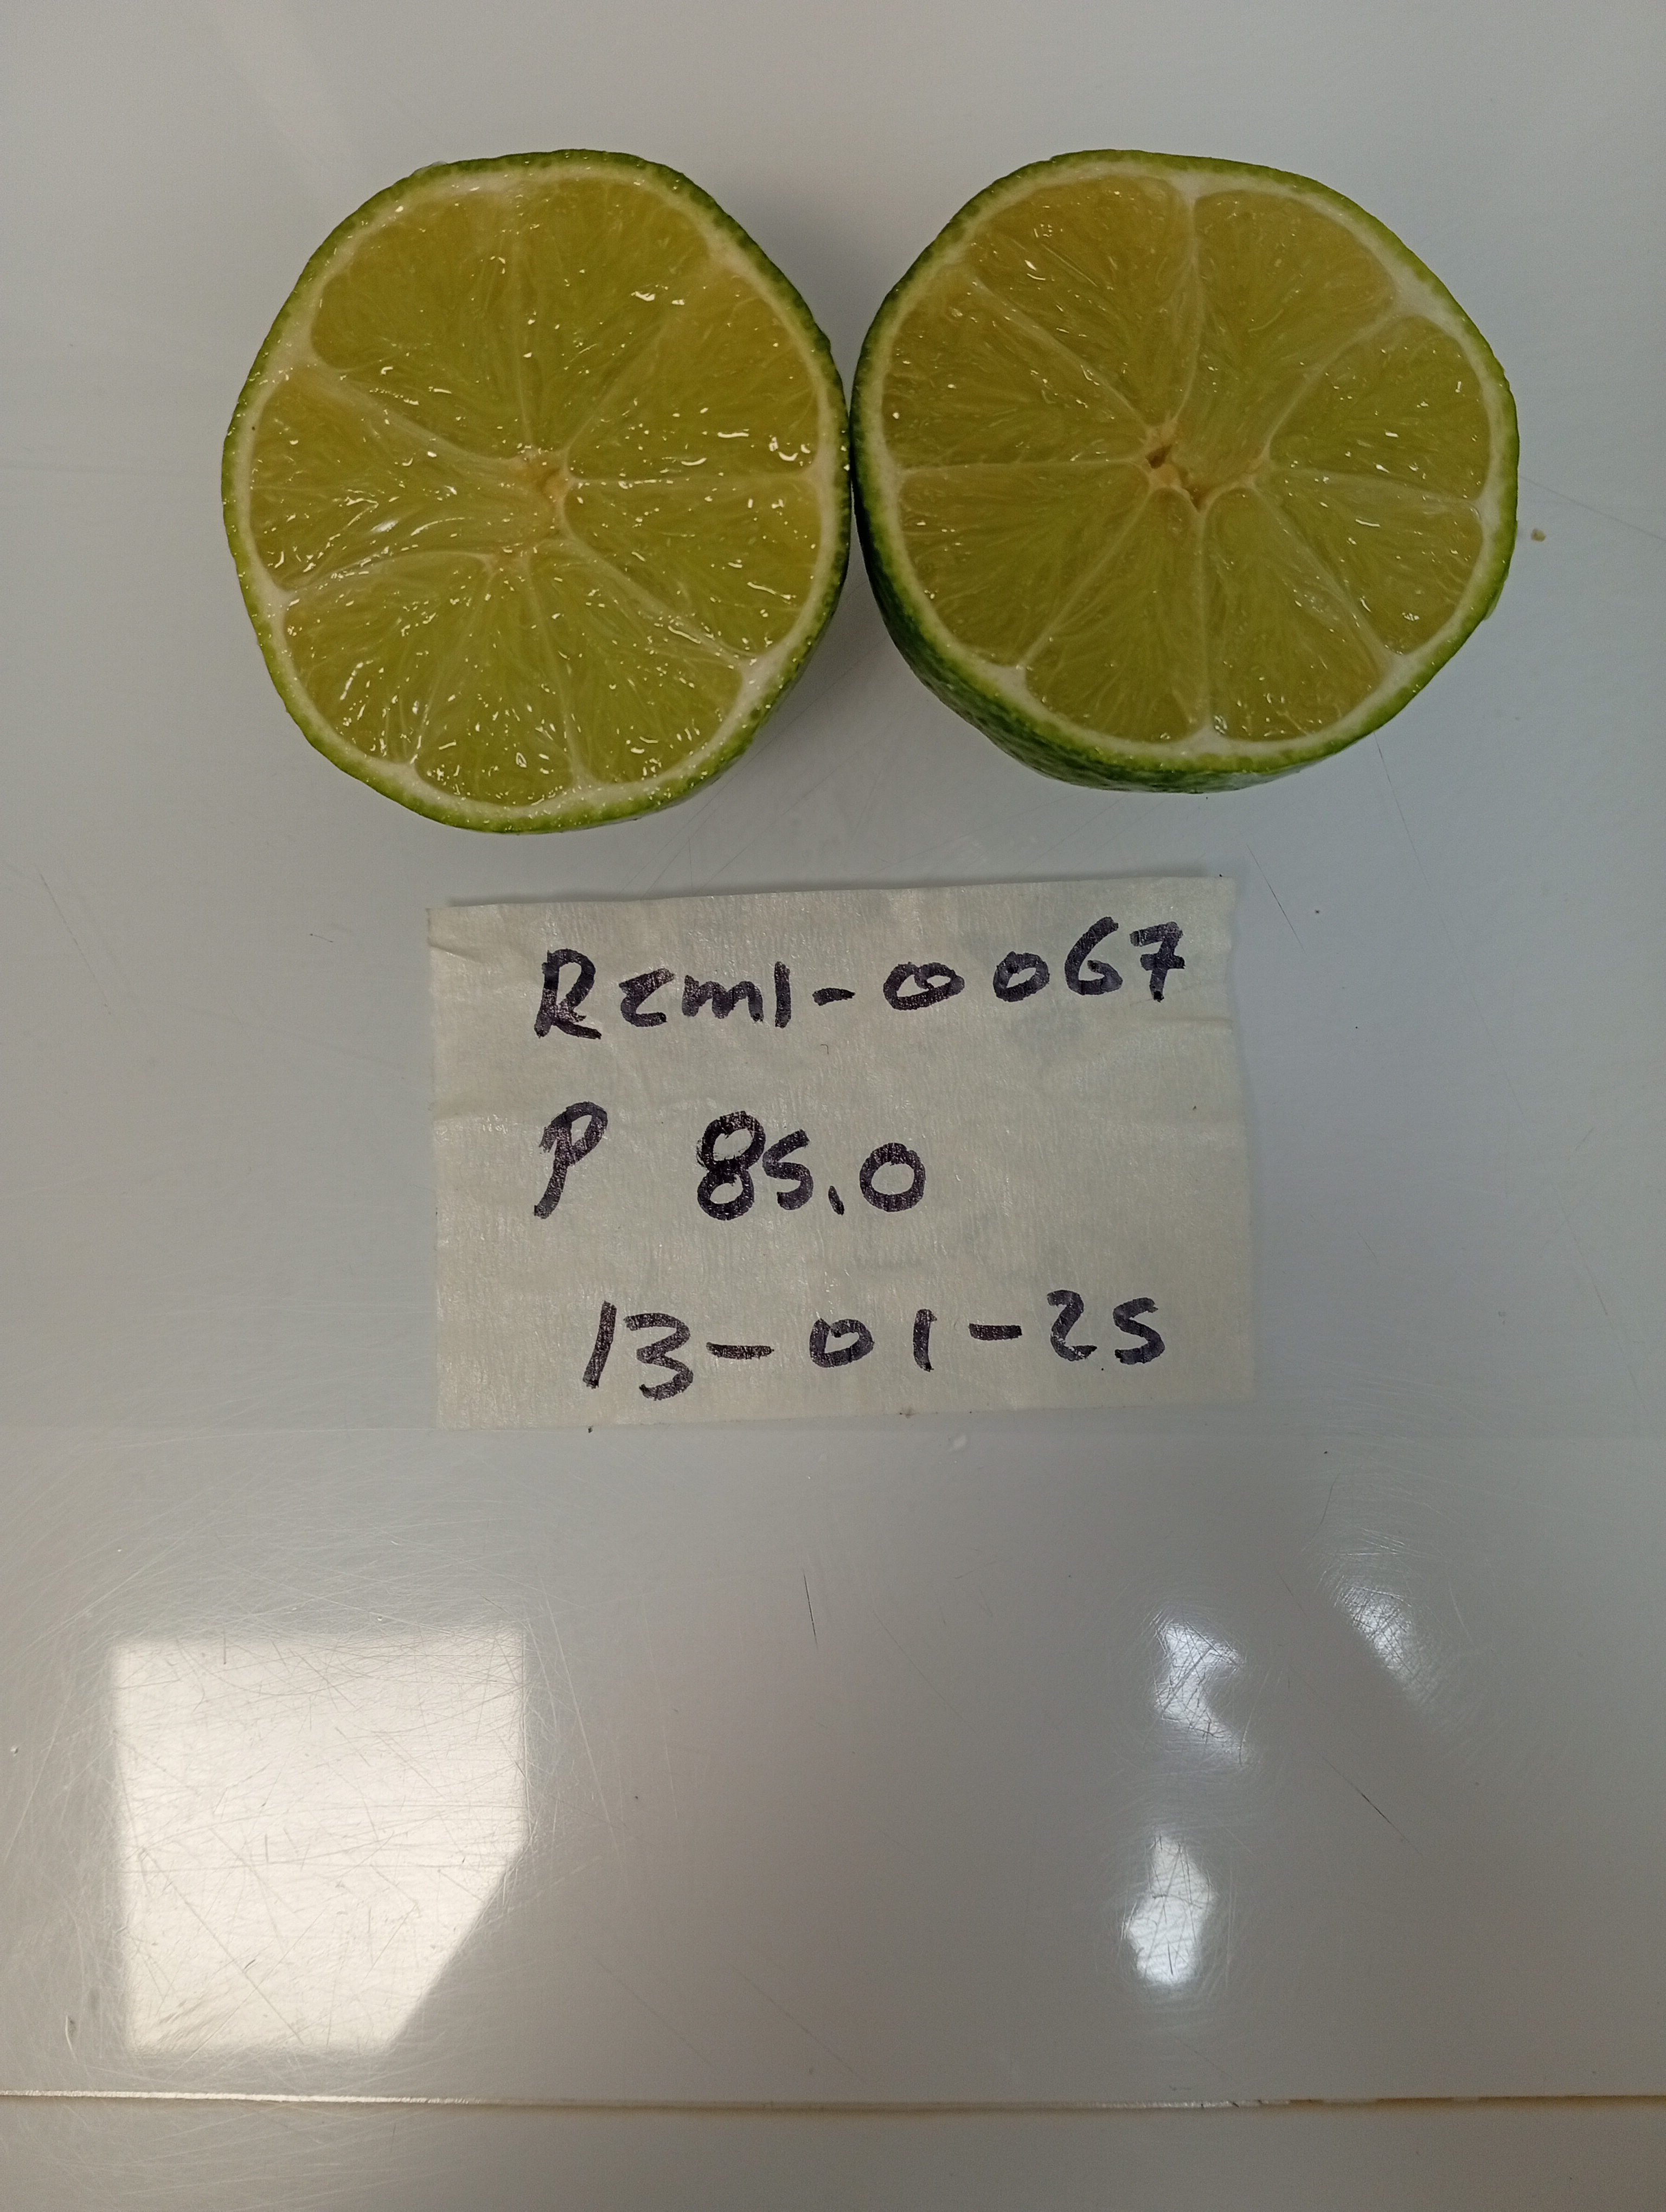 Rzm1-0067
P 85.0
13-01-25